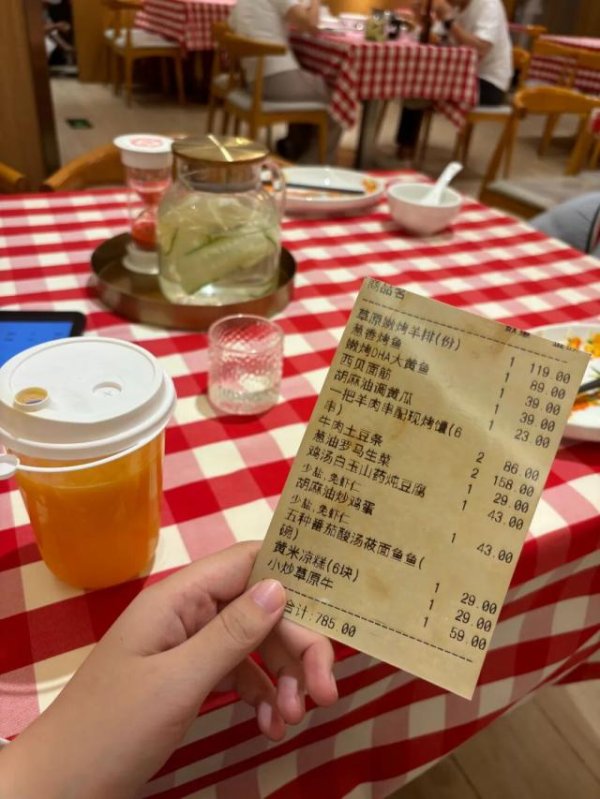 商品名 数量 金额
草原嫩烤羊排(份) 1 119.00
葱香烤鱼 1 89.00
嫩烤DHA大黄鱼 1 39.00
西贝面筋 1 39.00
胡麻油滴黄瓜 1 23.00
一把羊肉串配现烤馕(6
串) 2 86.00
牛肉土豆条 2 158.00
葱油罗马生菜 1 29.00
鸡汤白玉山药炖豆腐 1 43.00
少盐,免虾仁
胡麻油炒鸡蛋 1 43.00
少盐,免虾仁
五种番茄酸汤莜面鱼鱼(
碗) 1 29.00
黄米凉糕(6块) 1 29.00
小炒草原牛 1 59.00
合计:785.00